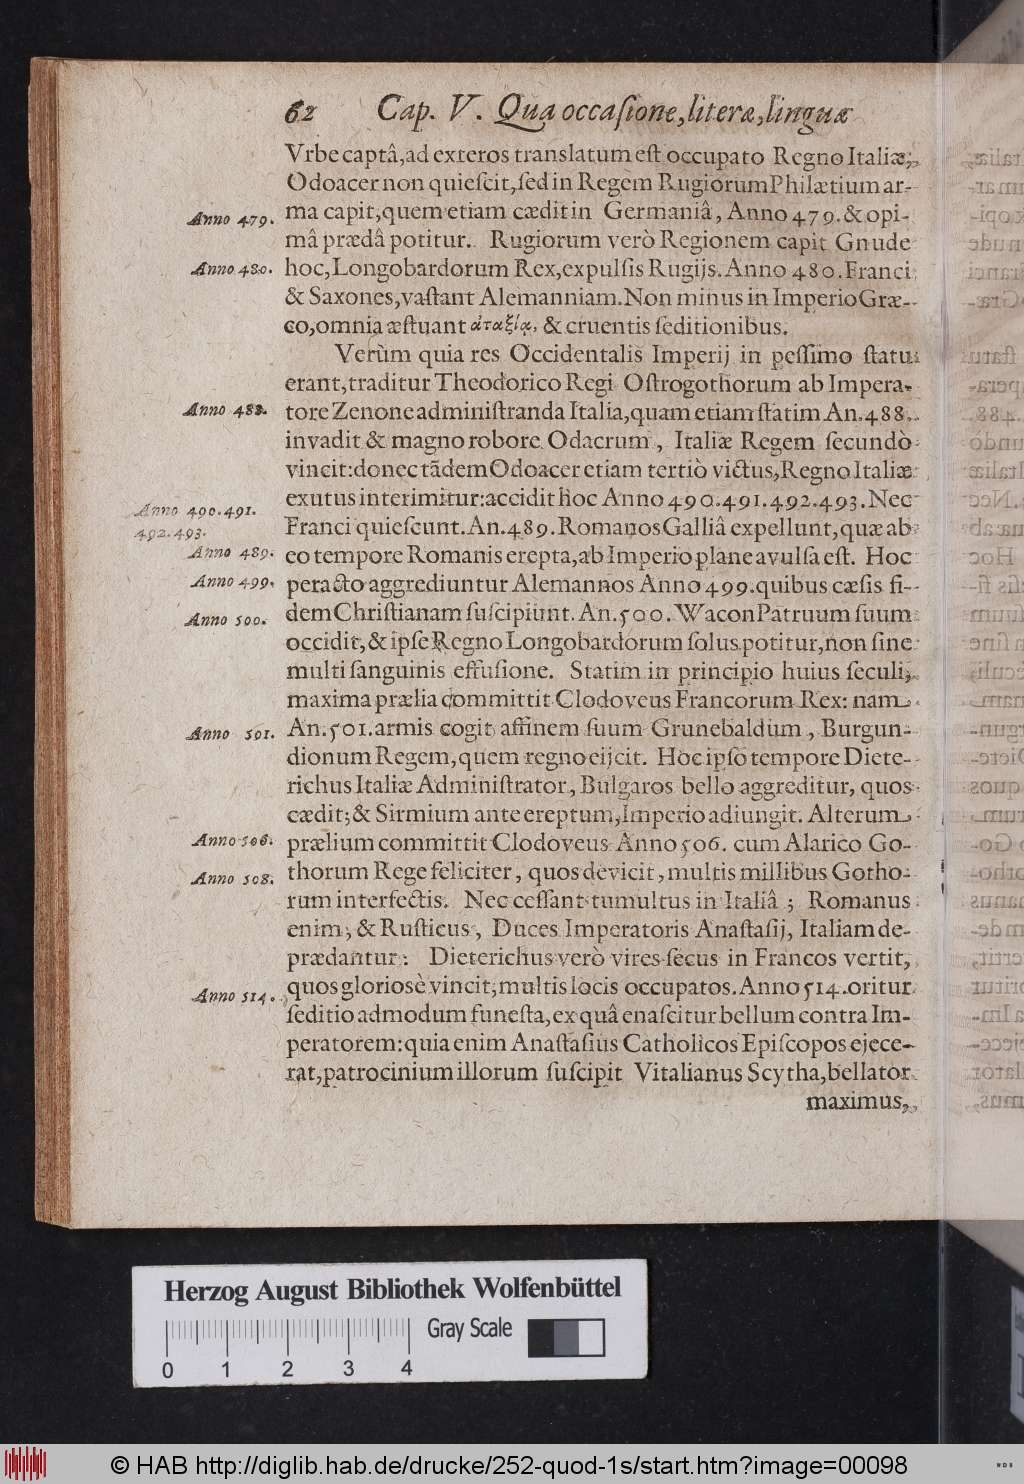 62 Cap. V. Qua occaſione, literæ, linguæ
Vrbe captâ, ad exteros translatum eſt occupato Regno Italiæ;
Odoacer non quieſcit, ſed in Regem Rugiorum Philætium ar-
Anno 479. ma capit, quem etiam cædit in Germaniâ, Anno 479. & opi-
mâ prædâ potitur. Rugiorum verò Regionem capit Gnude
Anno 480. hoc, Longobardorum Rex, expulſis Rugijs. Anno 480. Franci
& Saxones, vaſtant Alemanniam. Non minus in Imperio Græ-
co, omnia æſtuant ἀταξίᾳ, & cruentis ſeditionibus.
Verùm quia res Occidentalis Imperij in peſſimo ſtatu
erant, traditur Theodorico Regi Oſtrogothorum ab Impera-
Anno 488. tore Zenone adminiſtranda Italia, quam etiam ſtatim An. 488.
invadit & magno robore Odacrum, Italiæ Regem ſecundò
vincit: donec tãdem Odoacer etiam tertiò victus, Regno Italiæ
Anno 490. 491. exutus interimitur: accidit hoc Anno 490. 491. 492. 493. Nec
492. 493. Franci quieſcunt. An. 489. Romanos Galliâ expellunt, quæ ab
Anno 489. eo tempore Romanis erepta, ab Imperio plane avulſa eſt. Hoc
Anno 499. peracto aggrediuntur Alemannos Anno 499. quibus cæſis fi-
Anno 500. dem Chriſtianam ſuſcipiunt. An. 500. Wacon Patruum ſuum
occidit, & ipſe Regno Longobardorum ſolus potitur, non ſine
multi ſanguinis effuſione. Statim in principio huius ſeculi,
maxima prælia committit Clodoveus Francorum Rex: nam
Anno 501. An. 501. armis cogit affinem ſuum Grunebaldum, Burgun-
dionum Regem, quem regno eijcit. Hoc ipſo tempore Diete-
richus Italiæ Adminiſtrator, Bulgaros bello aggreditur, quos
cædit; & Sirmium ante ereptum, Imperio adiungit. Alterum
Anno 506. prælium committit Clodoveus Anno 506. cum Alarico Go-
Anno 508. thorum Rege feliciter, quos devicit, multis millibus Gotho-
rum interfectis. Nec ceſſant tumultus in Italiâ; Romanus
enim, & Ruſticus, Duces Imperatoris Anaſtaſij, Italiam de-
prædantur: Dieterichus verò vires ſecus in Francos vertit,
Anno 514. quos glorioſè vincit, multis locis occupatos. Anno 514. oritur
ſeditio admodum funeſta, ex quâ enaſcitur bellum contra Im-
peratorem: quia enim Anaſtaſius Catholicos Epiſcopos ejece-
rat, patrocinium illorum ſuſcipit Vitalianus Scytha, bellator
maximus,
Herzog August Bibliothek Wolfenbüttel
Gray Scale
0 1 2 3 4
© HAB http://diglib.hab.de/drucke/252-quod-1s/start.htm?image=00098